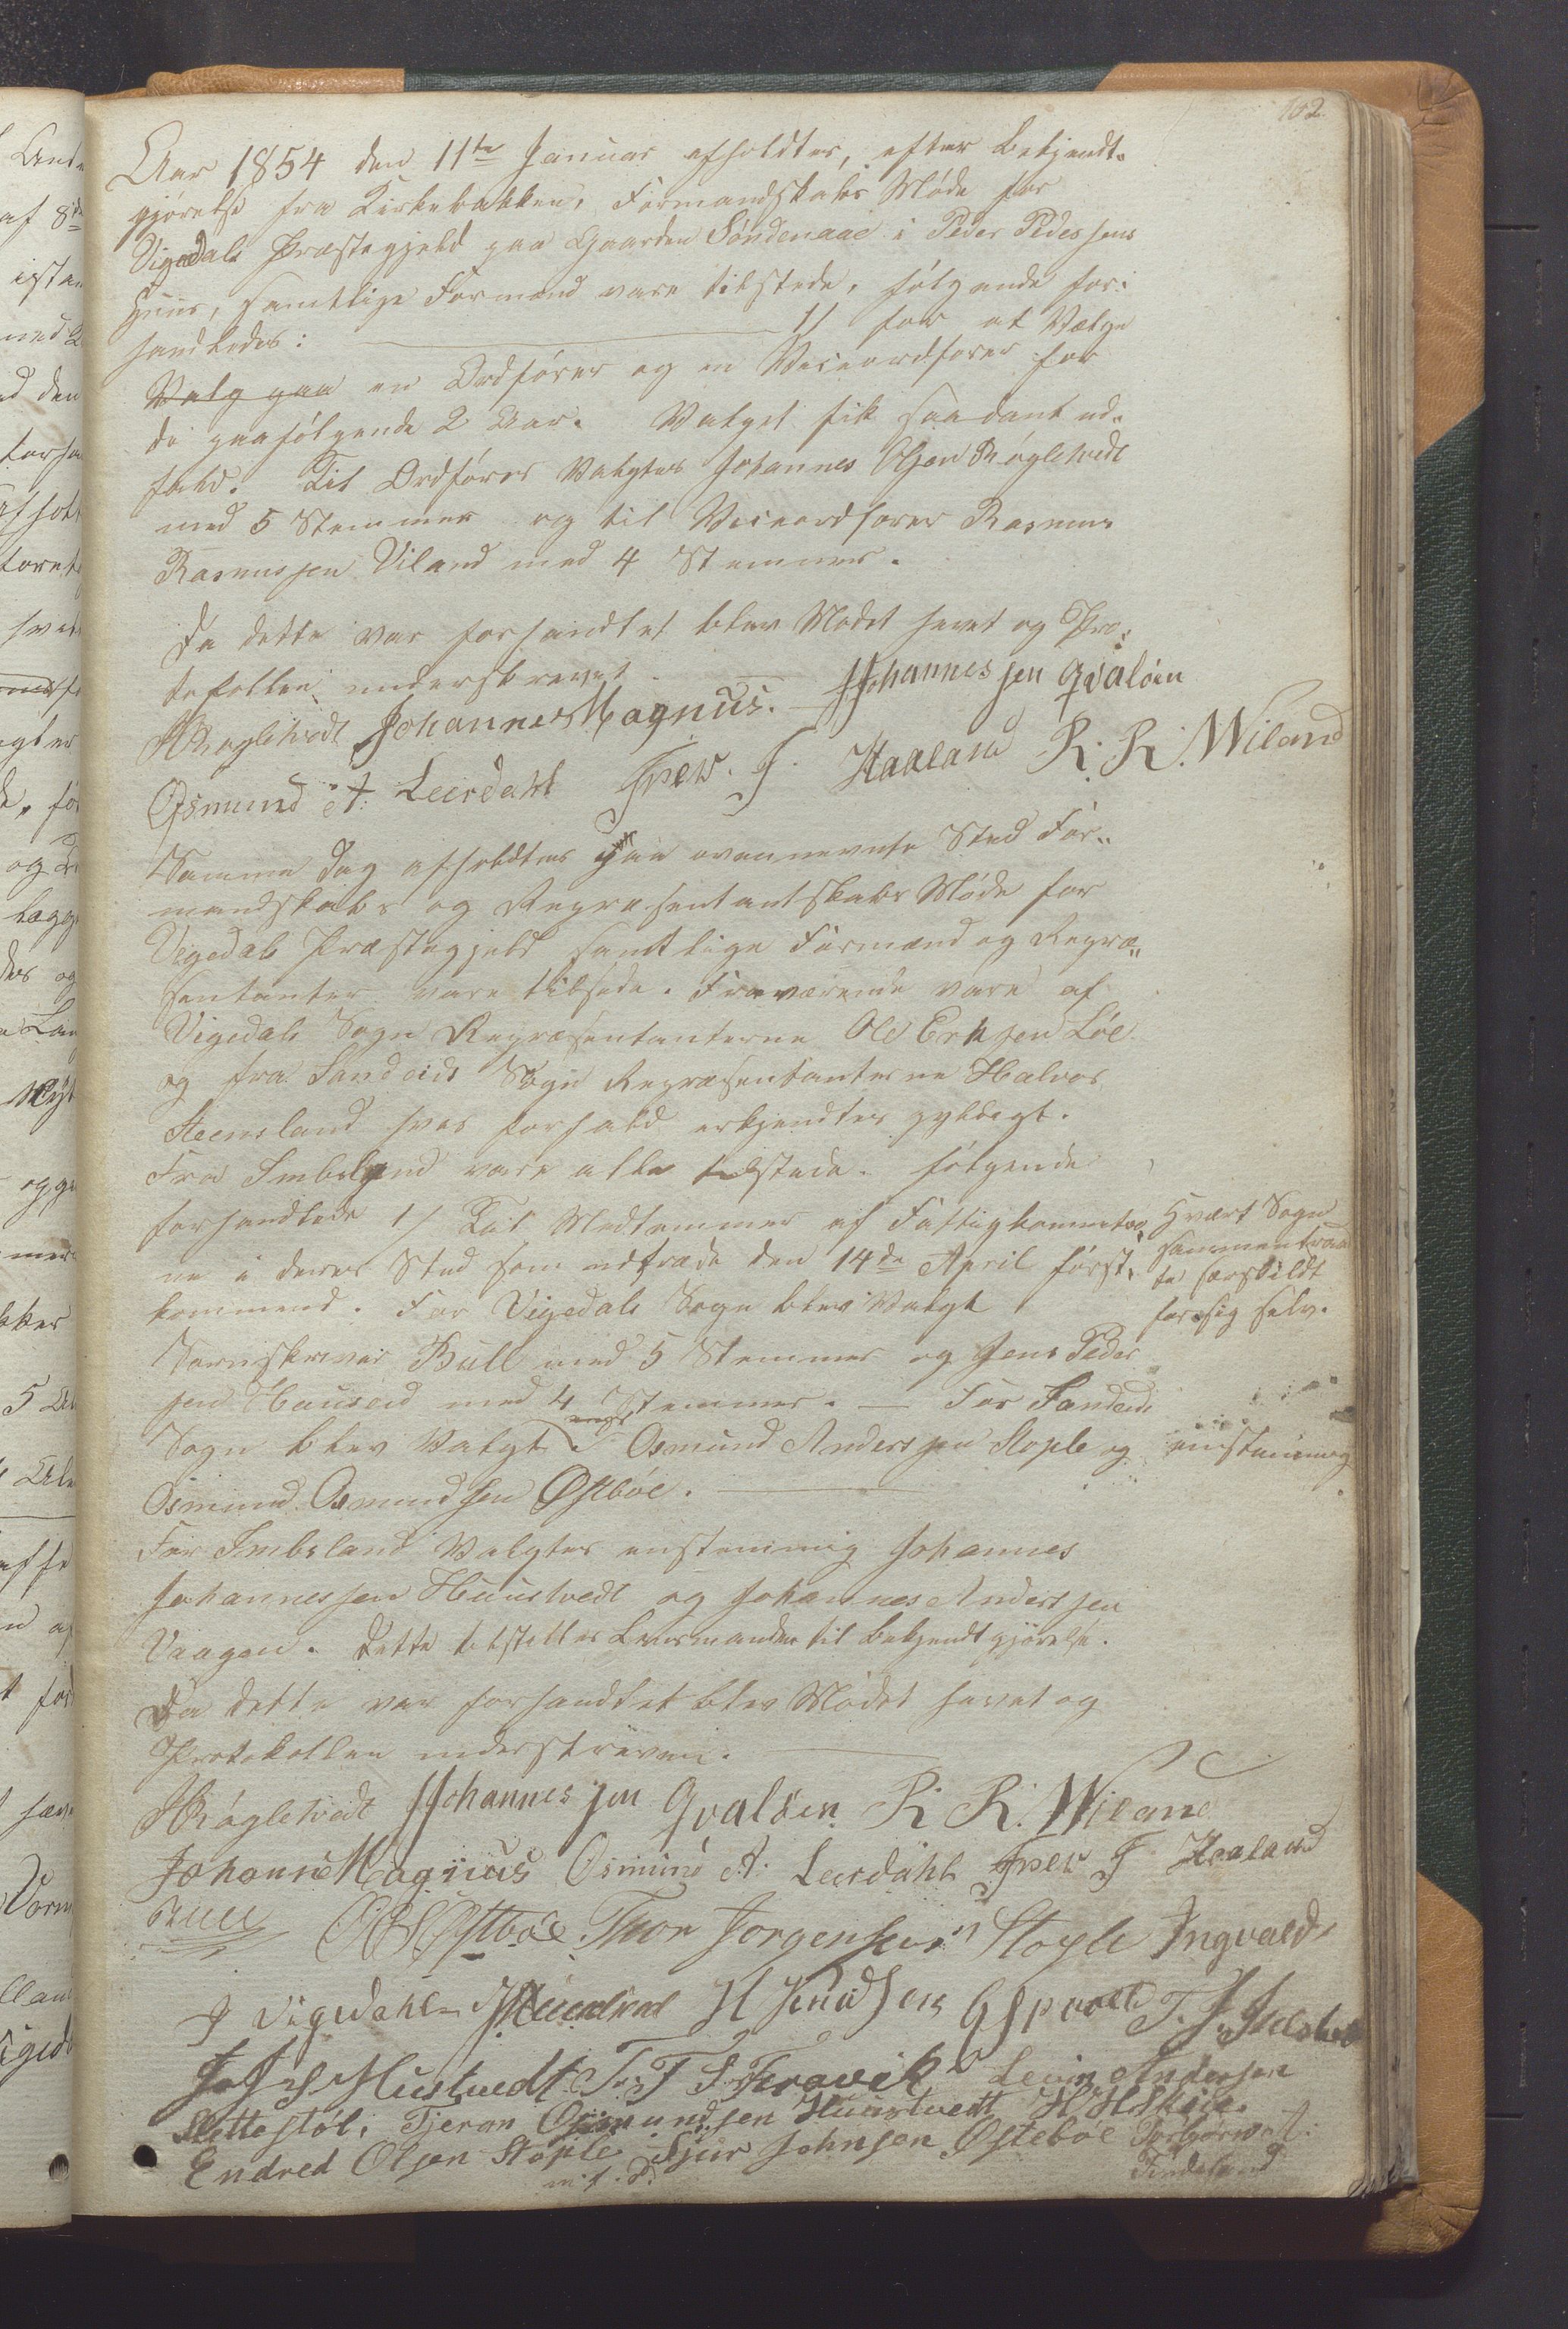 102.
Aar 1854 den 11te Januar afholdtes, efter Bekjendt-
gjørelse fra Kirkebakken, Formandskabs Møde for
Vigedals Præstegjeld paa Gaarden Søndenaae i Peder Pedersens
Huus, samtlige Formænd vare tilstede, følgende for-
handledes: 1/ for at Vælge
Valg paa en Ordfører og en Viceordfører for
de paafølgende 2 Aar. Valget fik saadant ud-
fald. Til Ordfører Valgtes Johannes Olsen Røgletvedt
med 5 Stemmer og til Viceordfører Rasmus
Rasmussen Viland med 4 Stemmer.
Da dette var forhandlet blev Mødet hevet og Pro-
tokollen underskrevet.
JORøgletvedt Johannes Magnus. JJohannessen Qvaløen
Osmund A. Leerdahl Iver. J. Haaland R. R. Wiland
Samme Dag afholdtes paa ovennevnte Sted For-
mandskabs og Repræsentantskabs Møde for
Vigedals Præstegjeld samtlige Formænd og Repræ-
sentanter vare tilstede. Fraværende vare af
Vigedals Sogn Repræsentanterne Ole Eriksen Løe
og fra Sandeids Sogn Repræsentanterne Halvor
Steensland hvis forfald erkjendtes gyldigt.
Fra Imbsland vare alle tilstede. følgende
forhandlede 1/ Til Medlemmer af Fattigkommisio-
ne i deres Sted som udtræde den 14de April først-
kommend. For Vigedals Sogn blev Valgt
Hvært Sogn
sammentraa
te særskildt
for sig selv.
Sornskriver Bull med 5 Stemmer og Jens Peder
sen Hauseid med 4 Stemmer. — For Sandeids
Sogn blev Valgt Osmund Anderssen Stople og
enstemmeg
Osmund Osmundsen Østbøe.
For Imbsland Valgtes enstemmig Johannes
Johannessen Huustvedt og Johannes Anderssen
Vaagen. Dette tilstilles Lensmanden til bekjendtgjørelse.
Da dette var forhandlet blev Mødet hevet og
Protokollen underskreven.
JORøgletvedt JJohannessen Qvaløen R. R. Wiland
Johannes Magnus Osmund A. Leerdahl Iver J Haaland
Bull Østbøe Thor Jørgensen Stople Ingvald
J Vigedahl H Knudsen
Hustvedt Leerviк Levin Andersen
Slettestøl, Tjeran Osmundsen Huustvedt
Endred Olsen Stople Sjur Johnsen Østebøe
m. f. P.